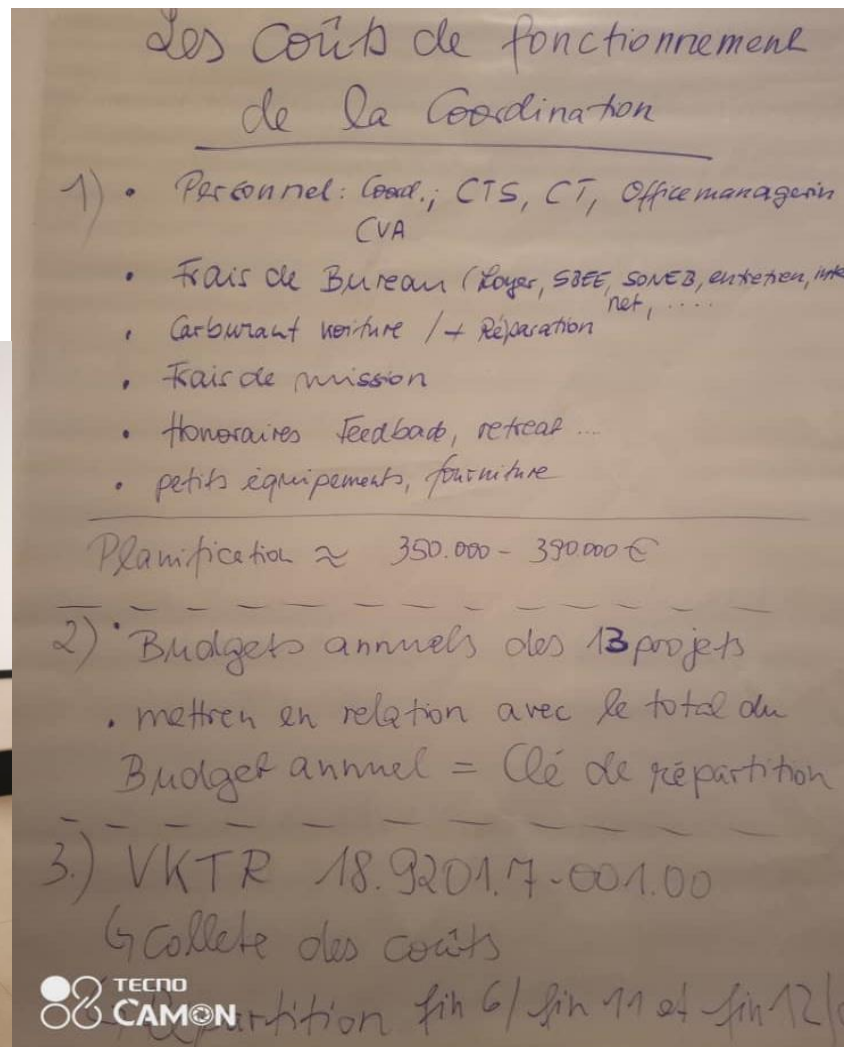 Les Coûts de fonctionnement
de la Coordination
1) • Personnel: Coord.; CTS, CT, Officemanagerin
CVA
• Frais de Bureau (Loyer, SBEE, SONEB, entretien, inter
net, ....
• Carburant voiture / + Réparation
• Frais de mission
• Honoraires Feedback, retreat ...
• petits équipements, fourniture
Planification ≈ 350.000 - 390.000 €
2) • Budgets annuels des 13 projets
• mettren en relation avec le total du
Budget annuel = Clé de répartition
3.) VKTR 18.9201.7-001.00
↳ Collete des coûts
fin 6/ fin 11 et fin 12/
TECNO
CAMON